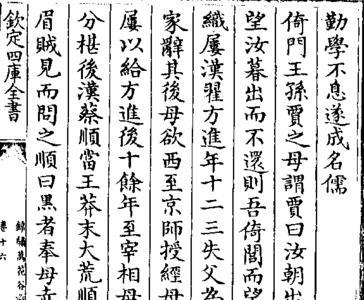 勤學不息遂成名儒
倚門王孫賈之母謂賈曰汝朝出
望汝暮出而不還則吾倚閭而望
織屨漢翟方進年十二三失父為
家辭其後母欲西至京師授經母
屨以給方進後十餘年至宰相母
分椹後漢蔡順當王莽末大荒順
眉賊見而問之順曰黑者奉母赤
欽定四庫全書
錦繡萬花谷
卷十六